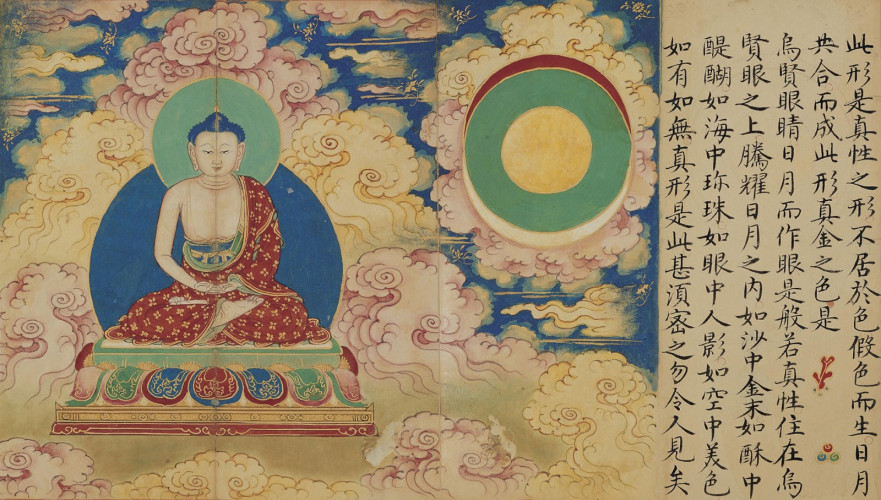 此形是真性之形不居於色假色而生日月
共合而成此形真金之色是
烏賢眼睛日月而作眼是般若真性住在烏
賢眼之上騰耀日月之內如沙中金末如酥中
醍醐如海中珎珠如眼中人影如空中美色
如有如無真形是此甚湏密之勿令人見矣